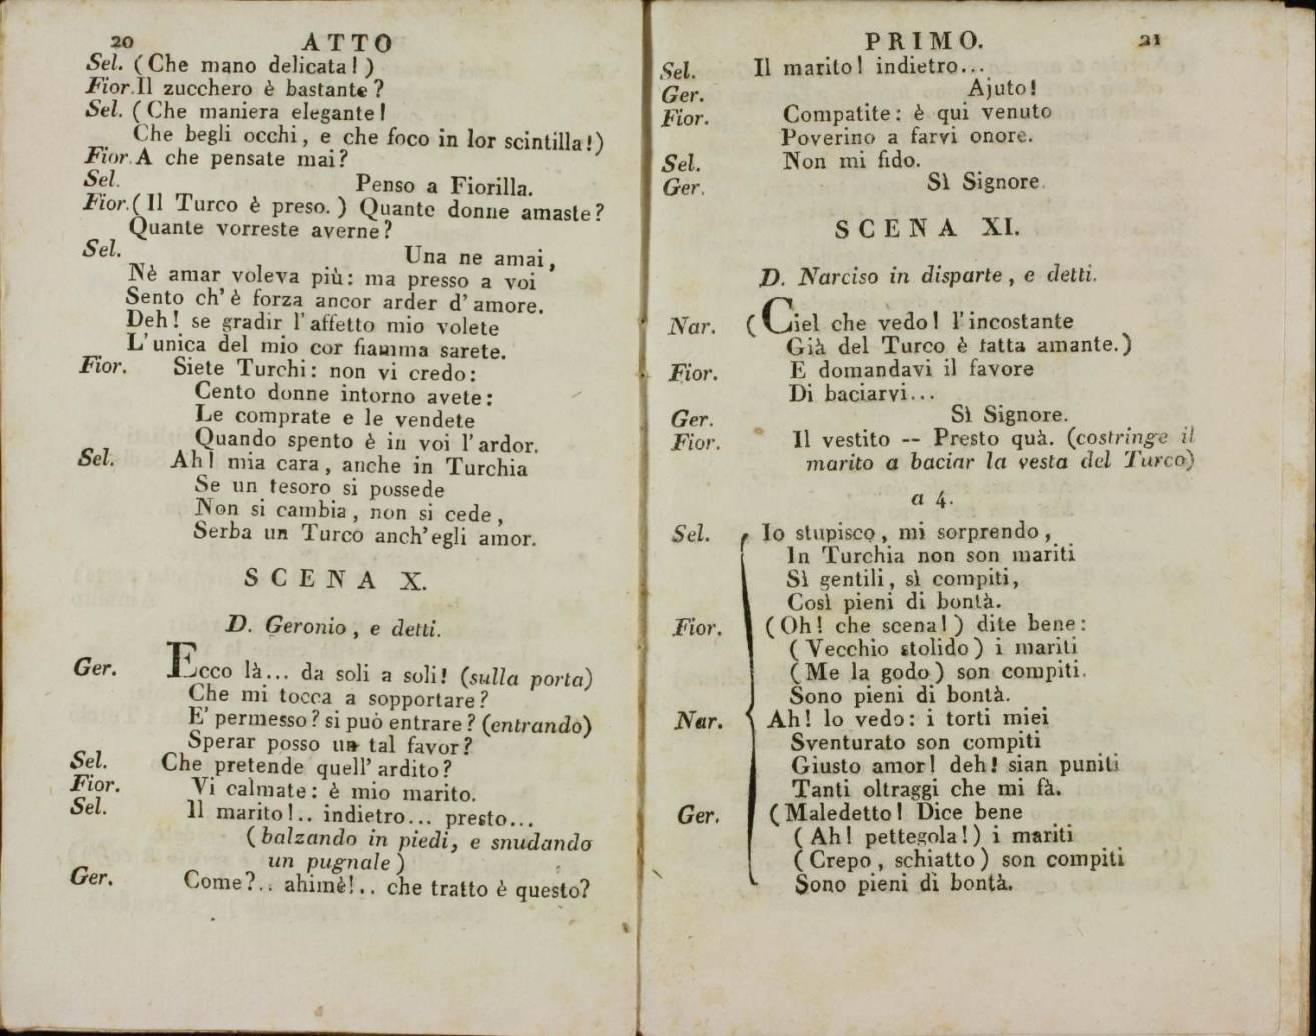 20 ATTO
Sel. (Che mano delicata!)
Fior. Il zucchero è bastante?
Sel. (Che maniera elegante!
Che begli occhi, e che foco in lor scintilla!)
Fior. A che pensate mai?
Sel. Penso a Fiorilla.
Fior. (Il Turco è preso.) Quante donne amaste?
Quante vorreste averne?
Sel. Una ne amai,
Nè amar voleva più: ma presso a voi
Sento ch'è forza ancor arder d'amore.
Deh! se gradir l'affetto mio volete
L'unica del mio cor fiamma sarete.
Fior. Siete Turchi: non vi credo:
Cento donne intorno avete:
Le comprate e le vendete
Quando spento è in voi l'ardor.
Sel. Ah! mia cara, anche in Turchia
Se un tesoro si possede
Non si cambia, non si cede,
Serba un Turco anch'egli amor.
SCENA X.
D. Geronio, e detti.
Ger. Ecco là... da soli a soli! (sulla porta)
Che mi tocca a sopportare?
E' permesso? si può entrare? (entrando)
Sperar posso un tal favor?
Sel. Che pretende quell' ardito?
Fior. Vi calmate: è mio marito.
Sel. Il marito!.. indietro... presto...
(balzando in piedi, e snudando
un pugnale)
Ger. Come?.. ahimè!.. che tratto è questo?
PRIMO. 21
Sel. Il marito! indietro...
Ger. Ajuto!
Fior. Compatite: è qui venuto
Poverino a farvi onore.
Sel. Non mi fido.
Ger. Sì Signore.
SCENA XI.
D. Narciso in disparte, e detti.
Nar. (Ciel che vedo! l'incostante
Già del Turco è fatta amante.)
Fior. E domandavi il favore
Di baciarvi...
Ger. Sì Signore.
Fior. Il vestito -- Presto quà. (costringe il
marito a baciar la vesta del Turco)
a 4.
Sel. Io stupisco, mi sorprendo,
In Turchia non son mariti
Sì gentili, sì compiti,
Così pieni di bontà.
Fior. (Oh! che scena!) dite bene:
(Vecchio stolido) i mariti
(Me la godo) son compiti.
Sono pieni di bontà.
Nar. Ah! lo vedo: i torti miei
Sventurato son compiti
Giusto amor! deh! sian puniti
Tanti oltraggi che mi fà.
Ger. (Maledetto! Dice bene
(Ah! pettegola!) i mariti
(Crepo, schiatto) son compiti
Sono pieni di bontà.